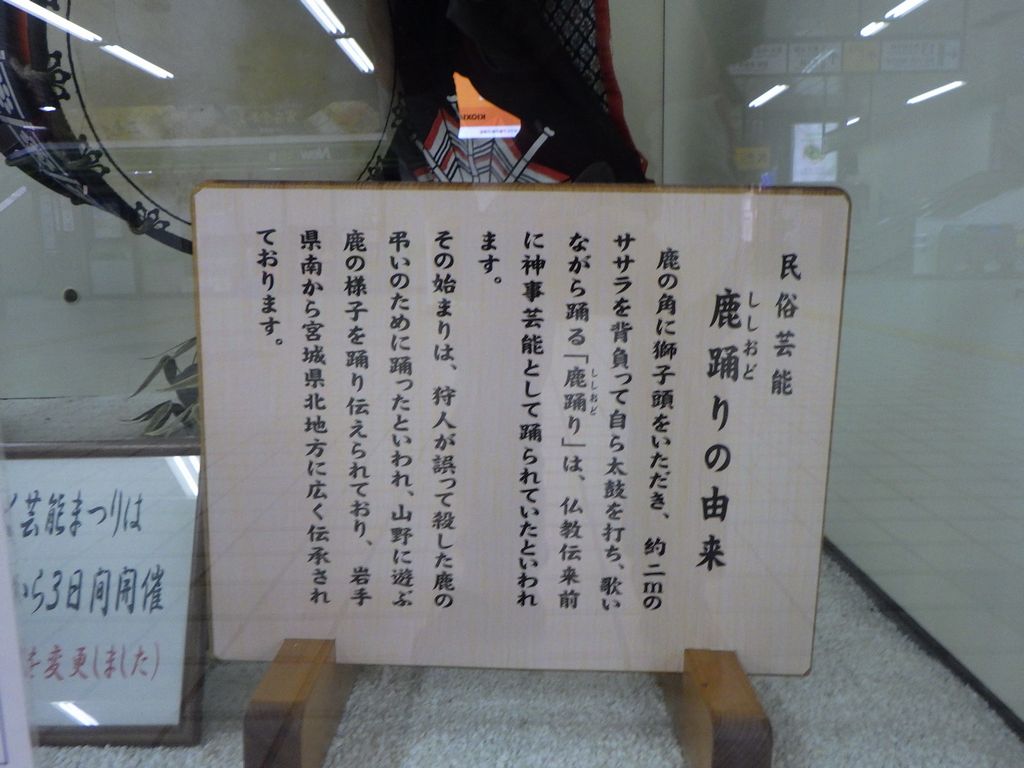 民俗芸能
ししおど
鹿踊りの由来
鹿の角に獅子頭をいただき、約二mの
ササラを背負って自ら太鼓を打ち、歌い
ながら踊る「鹿踊り」は、仏教伝来前
ししおど
に神事芸能として踊られていたといわれ
ます。
その始まりは、狩人が誤って殺した鹿の
弔いのために踊ったといわれ、山野に遊ぶ
鹿の様子を踊り伝えられており、岩手
県南から宮城県北地方に広く伝承され
ております。
芸能まつりは
から3日間開催
を変更しました)
KIOXIA